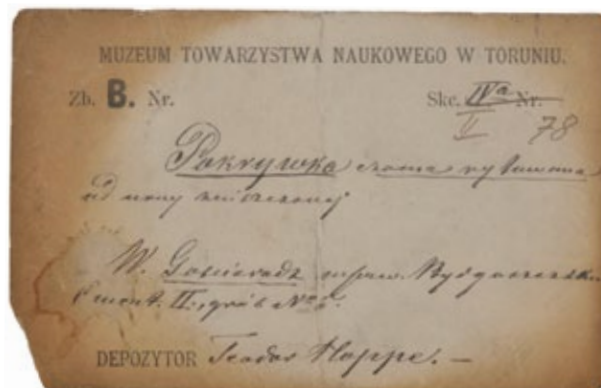 MUZEUM TOWARZYSTWA NAUKOWEGO W TORUNIU.
Zb. B. Nr. Skc. IVa Nr.
II 78
Pokrywka czarna rytowana
od urny zniszczonej
W. Gościeradz w pow. Bydgoszcz
Cment. II., grób No
DEPOZYTOR Teodor Hoppe. —